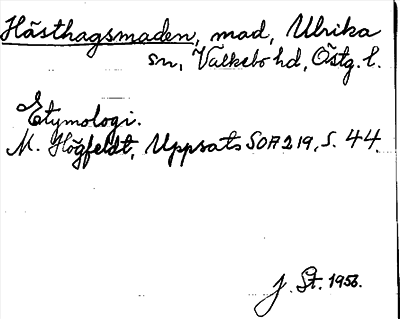 Hästhagsmaden, mad, Ulrika
sn, Valkebo hd, Östg. l.
Etymologi.
M. Högfeldt, Uppsats SOA 219, s. 44.
J. St. 1956.